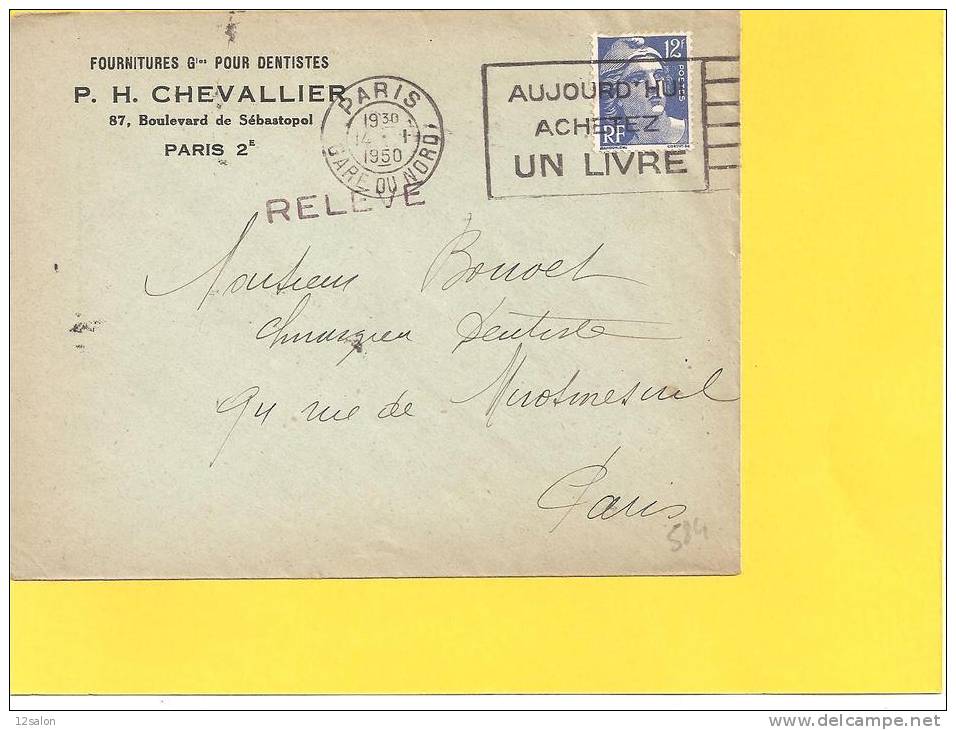 FOURNITURES Gles POUR DENTISTES
P. H. CHEVALLIER
87, Boulevard de Sébastopol
PARIS 2E
PARIS
1930
14 - 1
1950
GARE DU NORD
AUJOURD'HUI
ACHETEZ
UN LIVRE
12F
POSTES
RF
RELEVE
Monsieur Bouvet
Chirurgien Dentiste
94 rue de Miromesnil
Paris
584
12salon
delcampe.net